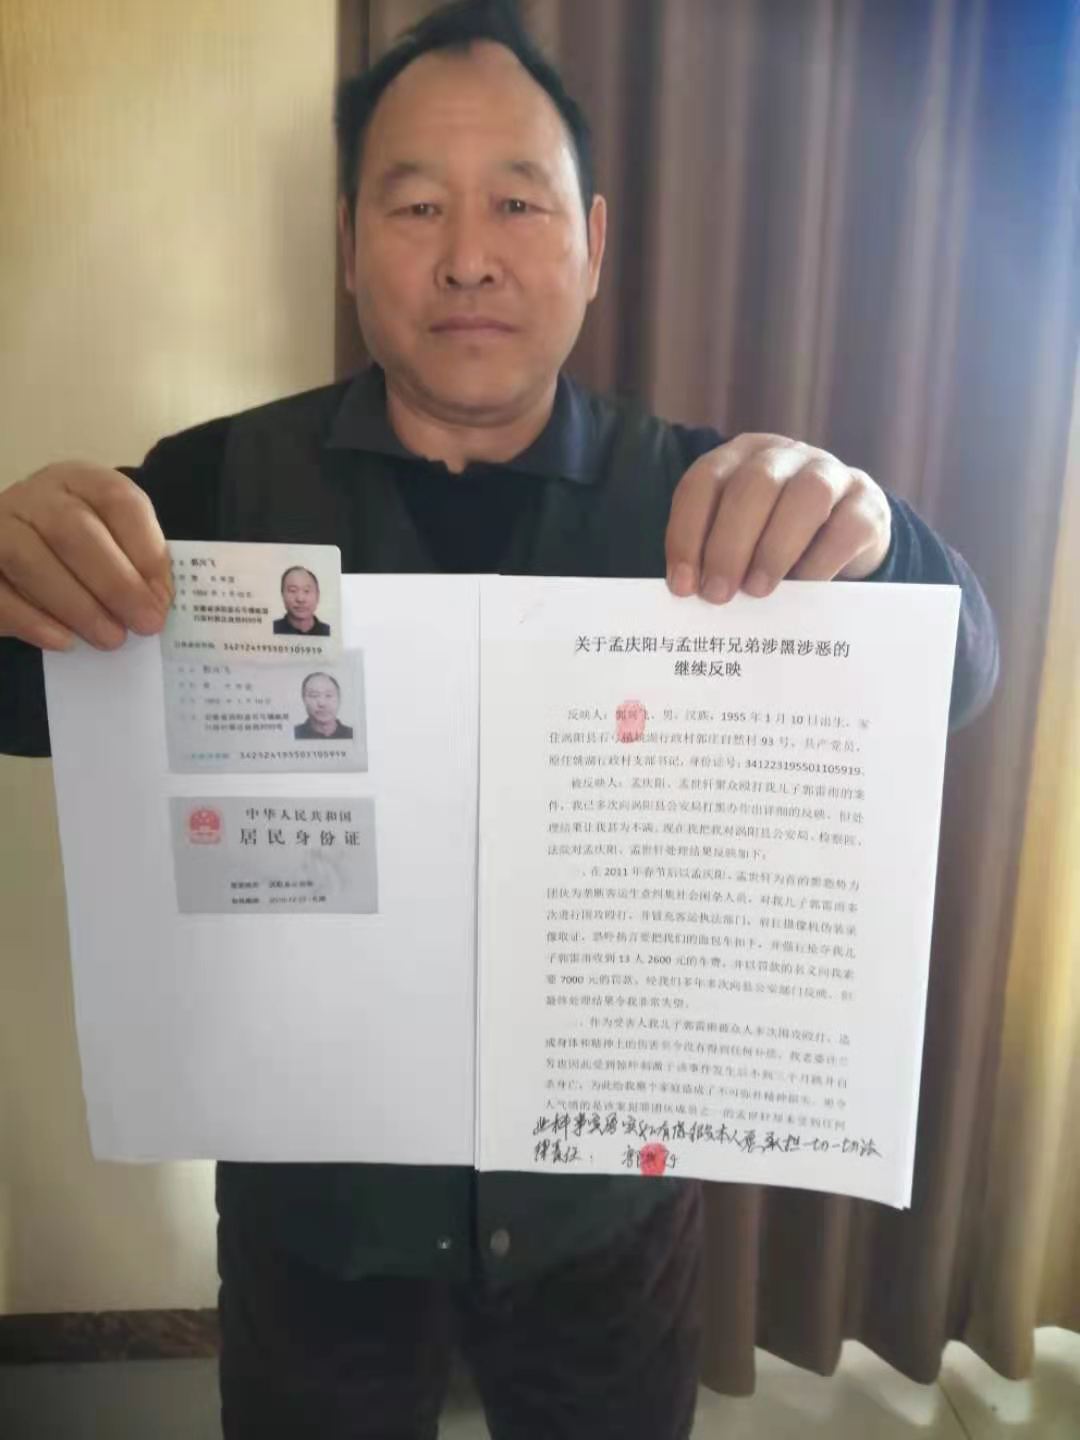 郭兴飞
342124195501105919
342124195501105919
中华人民共和国
居民身份证
关于孟庆阳与孟世轩兄弟涉黑涉恶的
继续反映
反映人：郭兴飞、男，汉族，1955年1月10日出生，家
住涡阳县石弓镇姚湖行政村郭庄自然村93号，共产党员，
原任姚湖行政村支部书记，身份证号：341223195501105919。
被反映人：孟庆阳、孟世轩聚众殴打我儿子郭雷雨的案
件，我已多次向涡阳县公安局打黑办作出详细的反映，但处
理结果让我甚为不满，现在我把我对涡阳县公安局、检察院、
法院对孟庆阳、孟世轩处理结果反映如下：
一、在2011年春节后以孟庆阳、孟世轩为首的黑恶势力
团伙为垄断客运生意纠集社会闲杂人员，对我儿子郭雷雨多
次进行围攻殴打，并冒充客运执法部门，肩扛摄像机伪装录
像取证，恐吓扬言要把我们的面包车扣下，并强行抢夺我儿
子郭雷雨收到13人2600元的车费，并以罚款的名义向我索
要7000元的罚款，经我们多年来多次向县公安部门反映，但
最终处理结果令我非常失望。
二、作为受害人我儿子郭雷雨被众人多次围攻殴打，造
成身体和精神上的伤害至今没有得到任何补偿，我老婆许兰
英也因此受到惊吓刺激于该事件发生后不到三个月跳井自
杀身亡，为此给我整个家庭造成了不可弥补精神损失，更令
人气愤的是该案犯罪团伙成员之一的孟世轩却未受到任何
此材事实属实如有虚假我本人愿承担一切一切法
律责任： 郭兴飞